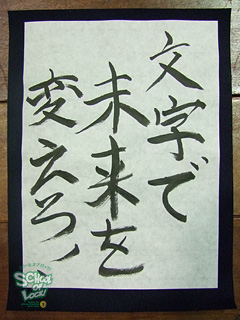 文字で
未来を
変えろ!
SCHOOL
OF
LOCK!